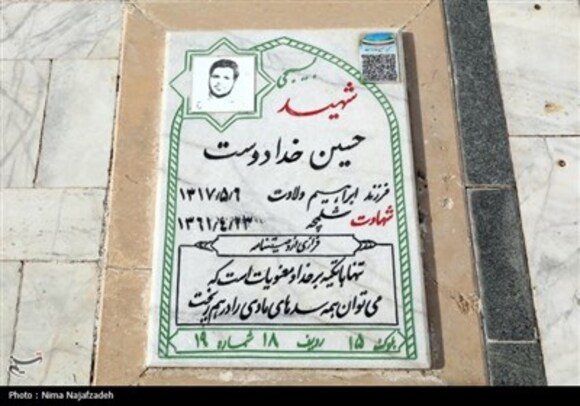 بسیجی
شهید
حسین خدادوست
فرزند ابراهیم ولادت ۱۳۱۷/۵/۹
شهادت شلمچه ۱۳۶۱/۴/۲۳
فرازی از وصیتنامه
تنها با تکیه بر خدا و معنویات است که
می‌توان همه سدهای مادی را در هم ریخت
بلوک ۱۵ ردیف ۱۸ شماره ۱۹
Photo : Nima Najafzadeh